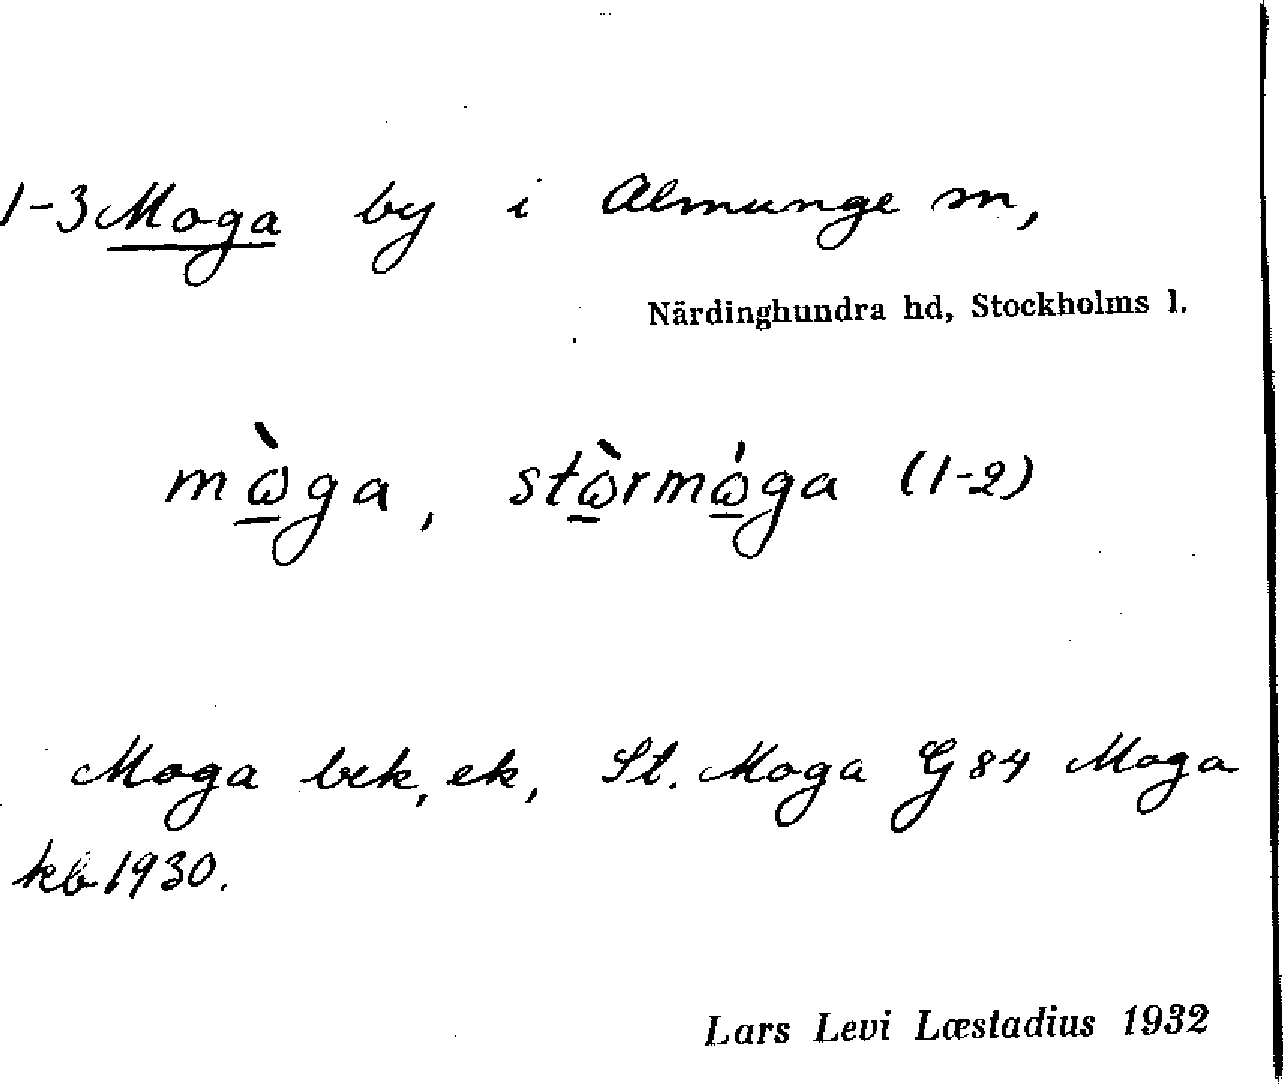 1-3 Moga by i Almunge sn,
Närdinghundra hd, Stockholms l.
mò̱ga, stò̱rmó̱ga (1-2)
Moga bek, ek, St. Moga G 84 Moga
kb 1930.
Lars Levi Læstadius 1932